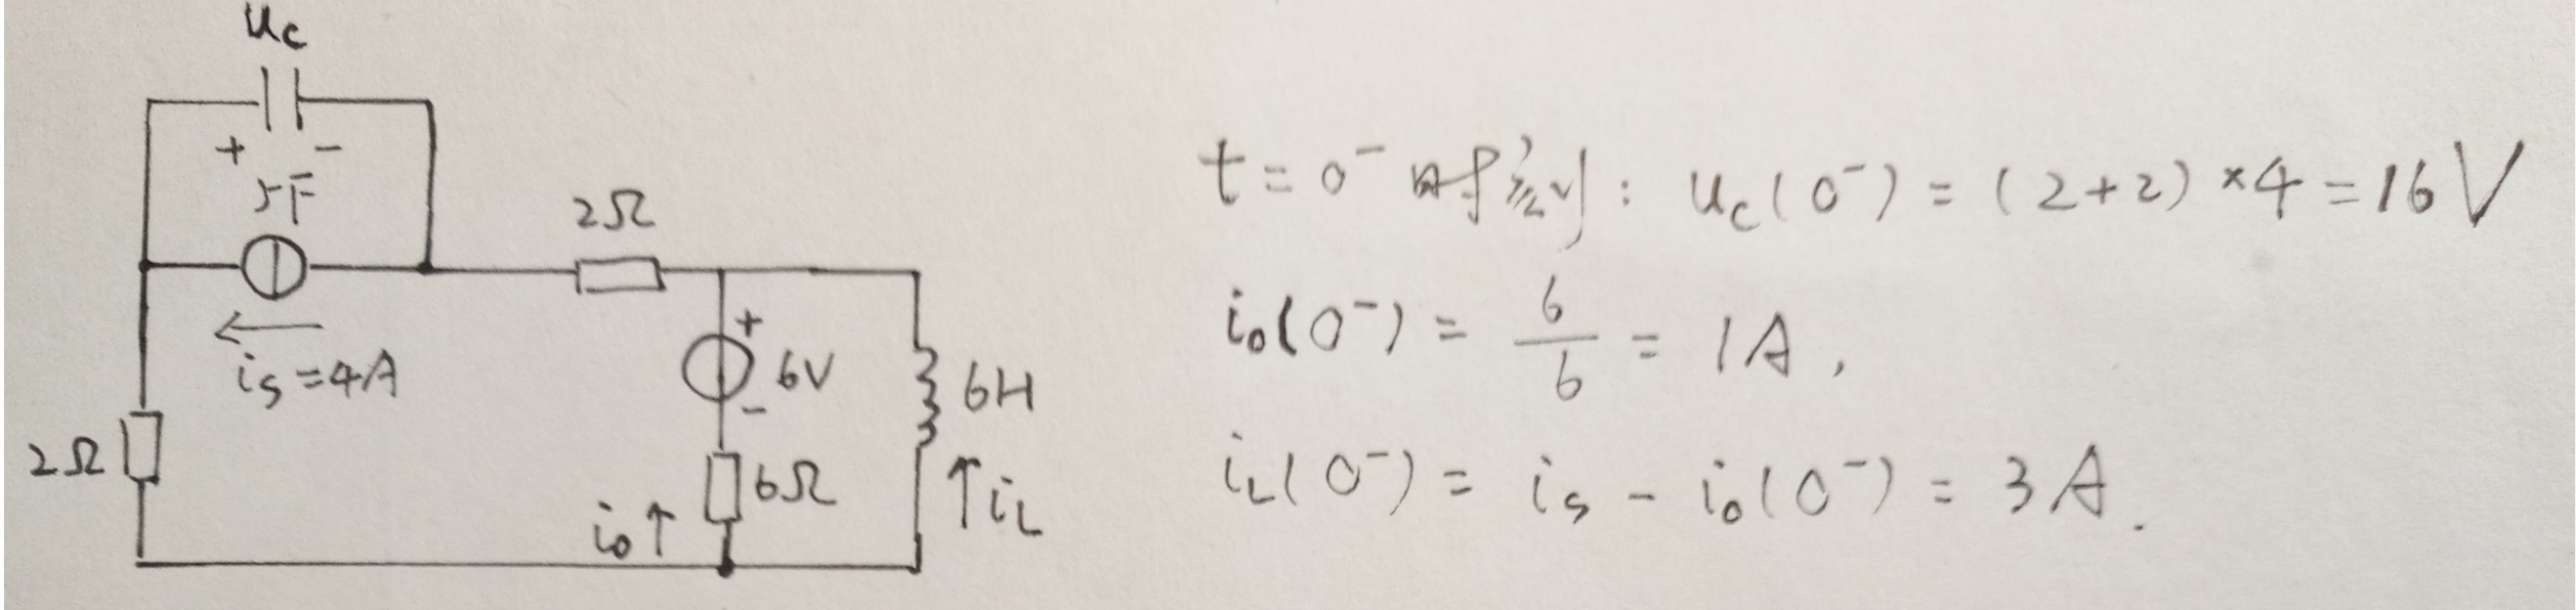 uc
+ -
5F
2Ω
is=4A
+
6V
-
6H
2Ω
6Ω
i₀↑
↑iL
t=0⁻时刻: uc(0⁻)=(2+2)×4=16V
i₀(0⁻)=6/6=1A,
iL(0⁻)=is-i₀(0⁻)=3A.